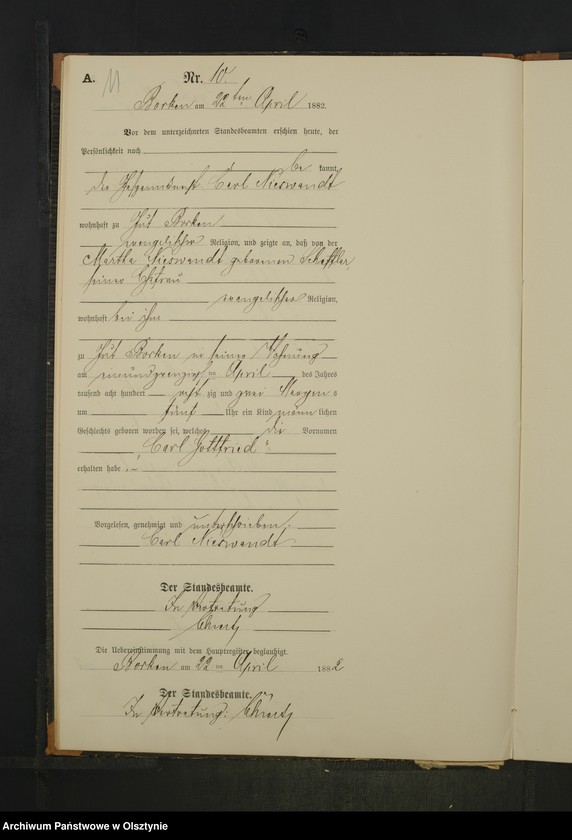 A. 11 Nr. 10.
Borken am 22ten April 1882.
Vor dem unterzeichneten Standesbeamten erschien heute, der
Persönlichkeit nach
be kannt,
der Carl Nieswandt
wohnhaft zu Gut Borken
evangelischer Religion, und zeigte an, daß von der
Martha Nieswandt geborenen Scheffler
seiner Ehefrau
evangelischer Religion,
wohnhaft bei ihm
zu Gut Borken in seiner Wohnung
am ten April des Jahres
tausend acht hundert acht zig und zwei Morgens
um fünf Uhr ein Kind männ lichen
Geschlechts geboren worden sei, welches die Vornamen
Carl Gottfried
erhalten habe.
Vorgelesen, genehmigt und unterschrieben
Carl Nieswandt
Der Standesbeamte.
In Vertretung
Die Uebereinstimmung mit dem Hauptregister beglaubigt.
Borken am 22 ten April 1882
Der Standesbeamte.
In Vertretung:
Archiwum Państwowe w Olsztynie